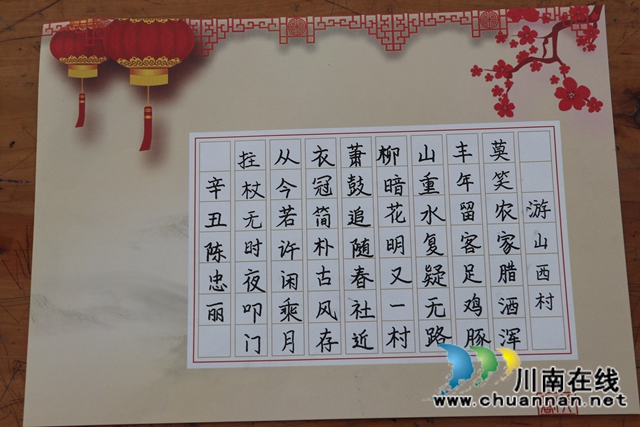 游山西村
莫笑农家腊酒浑
丰年留客足鸡豚
山重水复疑无路
柳暗花明又一村
萧鼓追随春社近
衣冠简朴古风存
从今若许闲乘月
拄杖无时夜叩门
辛丑陈忠丽
川南在线
www.chuannan.net